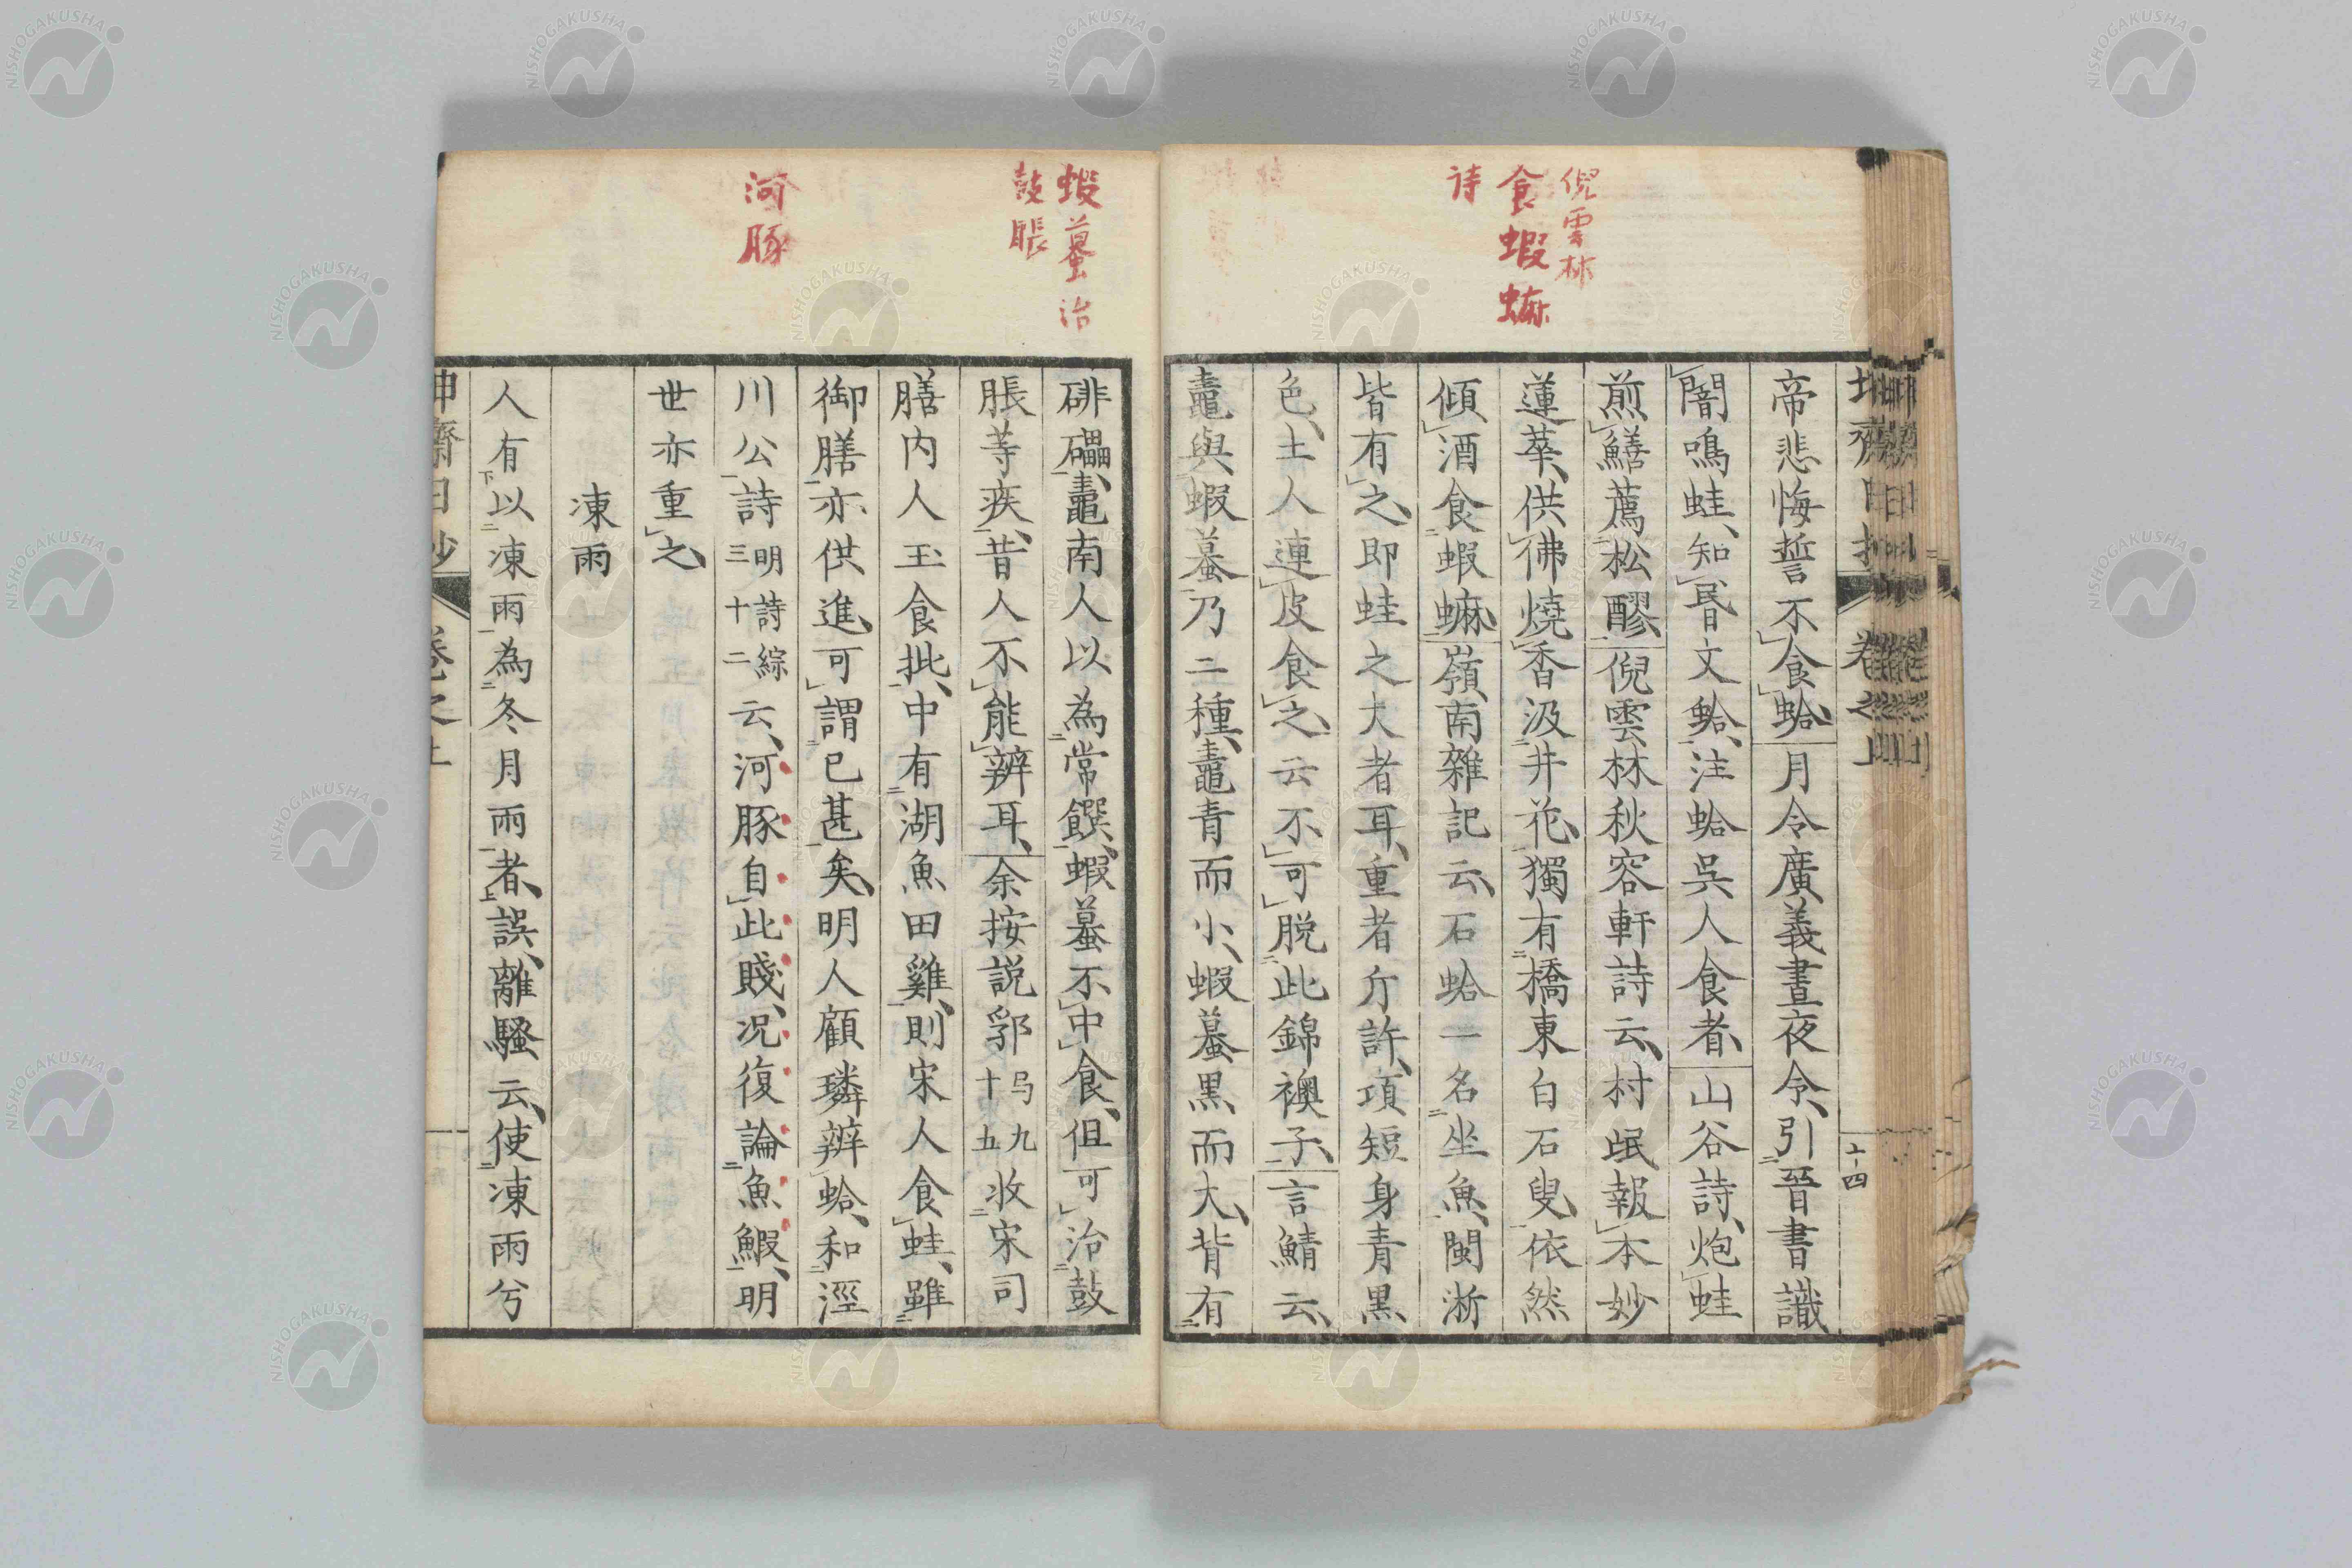 倪雲林
食蝦蟆
詩
帝悲悔誓不食蛤月令廣義晝夜令引晉書識
闇鳴蛙知昬文蛤注蛤吳人食者山谷詩炮蛙
煎鱔薦松醪倪雲林秋容軒詩云村氓報本妙
蓮萃供佛燒香汲井花獨有橋東白石叟依然
傾酒食蝦蟆嶺南雜記云石蛤一名坐魚閩淅
皆有之即蛙之大者耳重者斤許項短身青黑
色土人連皮食之云不可脱此錦襖子言鯖云
鼃與蝦蟇乃二種鼃青而小蝦蟇黑而大背有
蝦蟇治
鼓脹
河豚
硞礧鼃南人以為常饌蝦蟇不中食但可治鼓
脹等疾昔人不能辨耳余按説郛弓九十五收宋司
膳内人玉食批中有湖魚田雞則宋人食蛙雖
御膳亦供進可謂已甚矣明人顧璘辨蛤和涇
川公詩明詩綜三十二云河豚自此賤况復論魚鰕明
世亦重之
凍雨
人有以凍雨為冬月雨者誤離騷云使凍雨兮
卷之上
十四
NISHOGAKUSHA